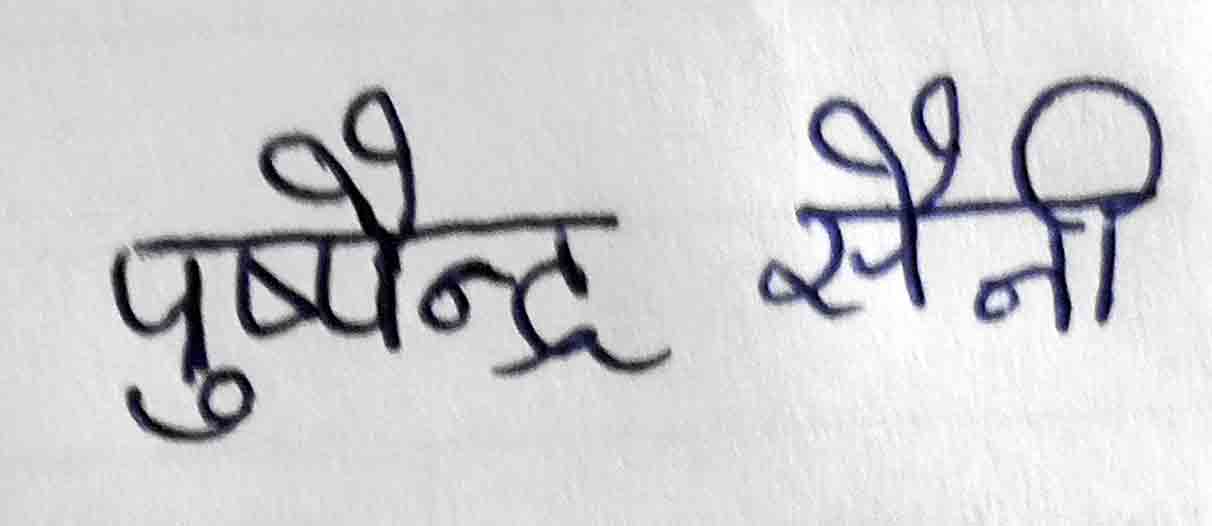 पुष्पैन्द्र सैनी